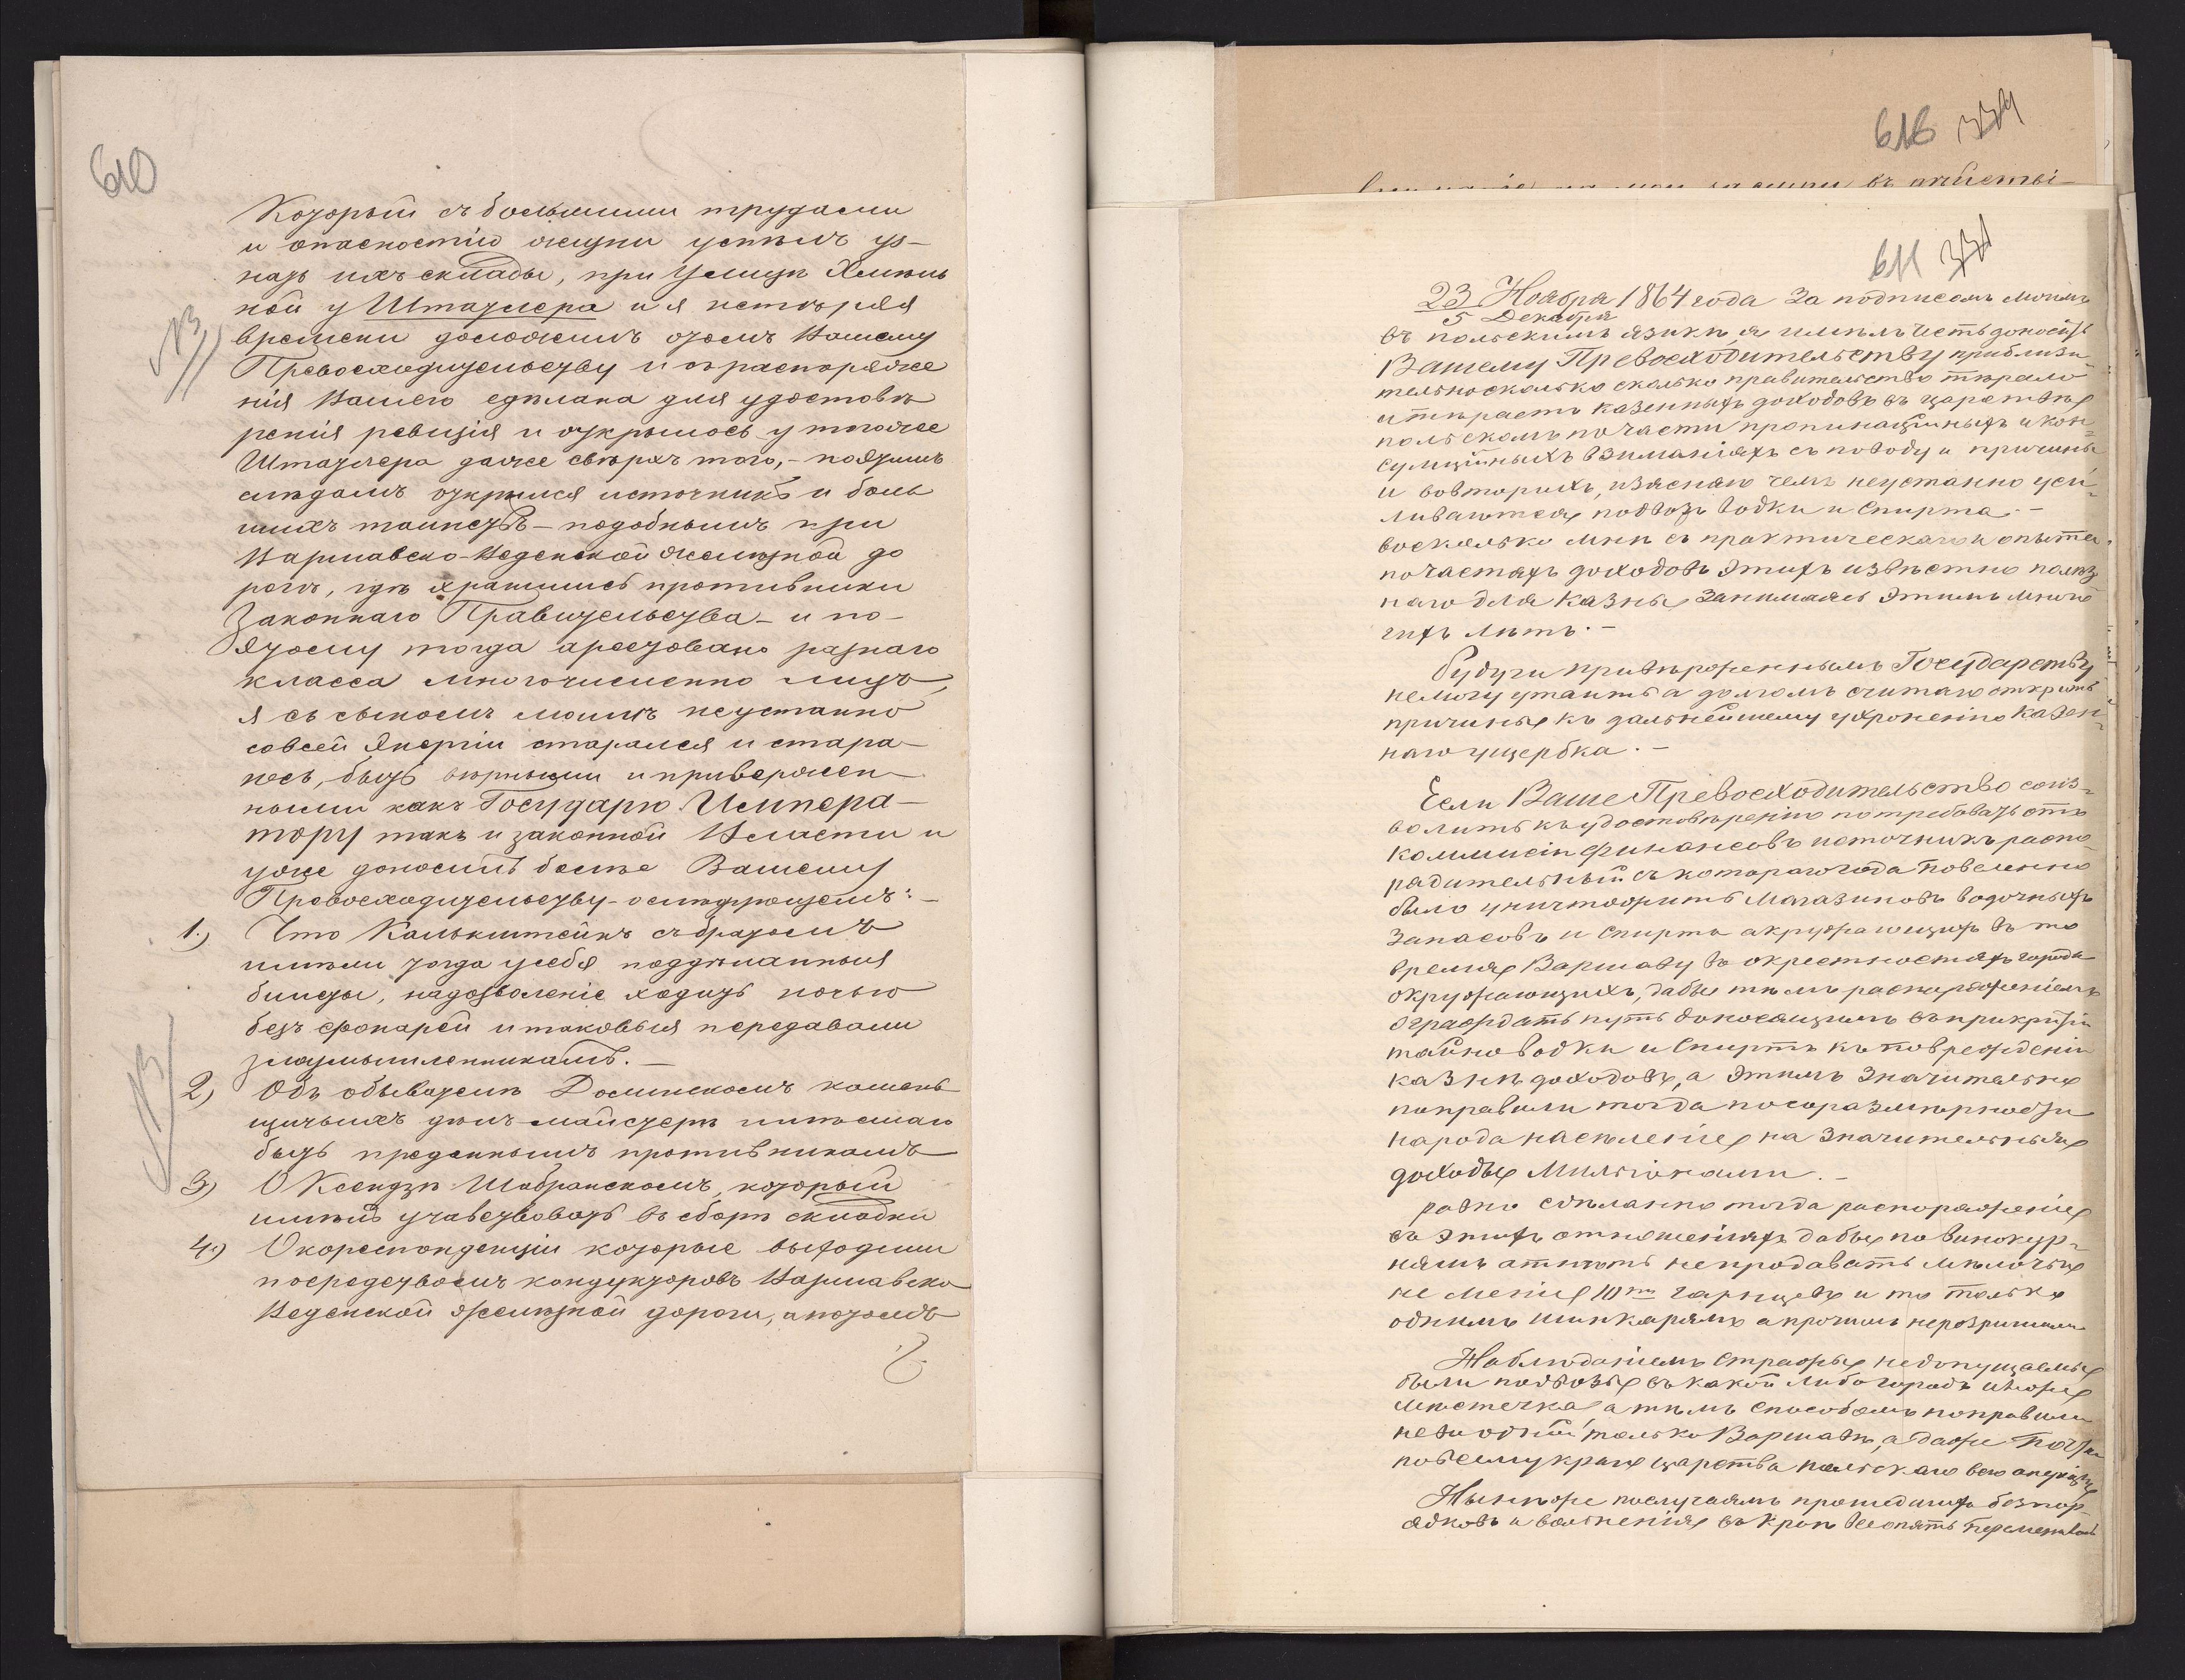 610
Который съ большими трудами
и опасностію жизни успѣлъ уз-
нать ихъ склады, при Улицѣ Хмѣль
ной у Штатлера и я нетѣряя
времени доложилъ отомъ Вашему
Превосходительству и въ распоряже
нія Вашего сдѣлана для удостовѣ
ренія ревизія и открылось у тогоже
Штатлера даже сверхъ того, - поэтимъ
слѣдамъ открылся источникъ и боль
шихъ таинствъ - подобнымъ при
Варшавско-Веденской желѣзной до
рогѣ, гдѣ хранились противники
Законнаго Правительства - и по-
этому тогда арестовано разнаго
класса многочисленно лицъ,
я съ сыномъ моимъ неустанно
совсей Энергіи старался и стара-
юсь, быть вѣрными и привержен-
ными какъ Государю Импера-
тору такъ и законной Власти и
уже доносилъ болѣе Вашему
Превосходительству - ослѣдующемъ: -
1.) Что Калькштейнъ съ братомъ
имѣли тогда у себя поддѣланныя
билеты, надозволеніе ходить ночью
безъ фонарей и таковыя передавали
злоумышленникамъ. -
2) Объ обывателѣ Долинскомъ камень
щичьихъ дѣлъ майстерѣ имѣлшаго
быть преданнымъ противникамъ
3) О Ксендзѣ Шабранскомъ, который
имѣлъ участвовать въ сборѣ складки
4.) Окореспонденціи которые выходили
посредствомъ кондукторовъ Варшавско
Веденской желѣзной дороги, а потомъ
616 334
въ
611 331
23 Ноября 1864 года За подписомъ моимъ
5 Декабря
въ польскимъ языкѣ, я имѣлъ честь доносить
Вашему Превосходительству приблизи
тельносколько сколько правительство тѣрало
и тѣраетъ казенныхъ доходовъ въ царствѣ
польскомъ по части пропинаційныхъ и кон-
сумційныхъ взиманіяхъ съ поводу и причины
и вовторихъ, изясняю чемъ неустанно уси-
ливаются подвозъ водки и Спирта. -
восколько мнѣ съ практическаго и опыта
почастяхъ доходовъ этихъ извѣстно полѣз
наго для Казны занимаясь Этимъ мно
гихъ лѣтъ. -
Будучи привѣрженнымъ Государству
немогу утаить а долгомъ считаю открыть
причины къ дальнѣйшему ухроненію казен-
наго ущербка. -
Если Ваше Превосходительство соиз-
волитъ къ удостовѣренію потребовать отъ
коммисіи Финансовъ источникъ распо-
радительный съ котораго года повеленно
было уничтожить Магазиновъ водочныхъ
Запасовъ и Спирта акружающихъ въ то
время Варшаву въ окрестностяхъ города
окружающихъ, дабы тѣмъ распоряженіемъ
ограждать путь доносящимъ въ прикритіи
тайно водки и Спиртъ къ поврежденіи
казнѣ доходовъ, а Этимъ значительне
направили тогда посоразмѣрности
народа населеніе на значительныя
доходы Миліонами. -
равно сдѣланно тогда распоряженіе
въ этихъ отношеніяхъ дабы по винокур-
нямъ отнють непродавать мѣлочью
не меніе 10ти гарнцевъ и то только
однимъ шинкарямъ а прочимъ неразришили
Наблюданіемъ Стражы недопущаемы
были подвозы въ какой либо городъ иже
мѣстечка а тѣмъ способомъ направили
невъ одной только Варшавѣ, а даже почти
повсему краю царства польскаго всю
Нынѣже послучаямъ прошедшихъ безпор-
ядковъ и волненія въ краѣ все опять